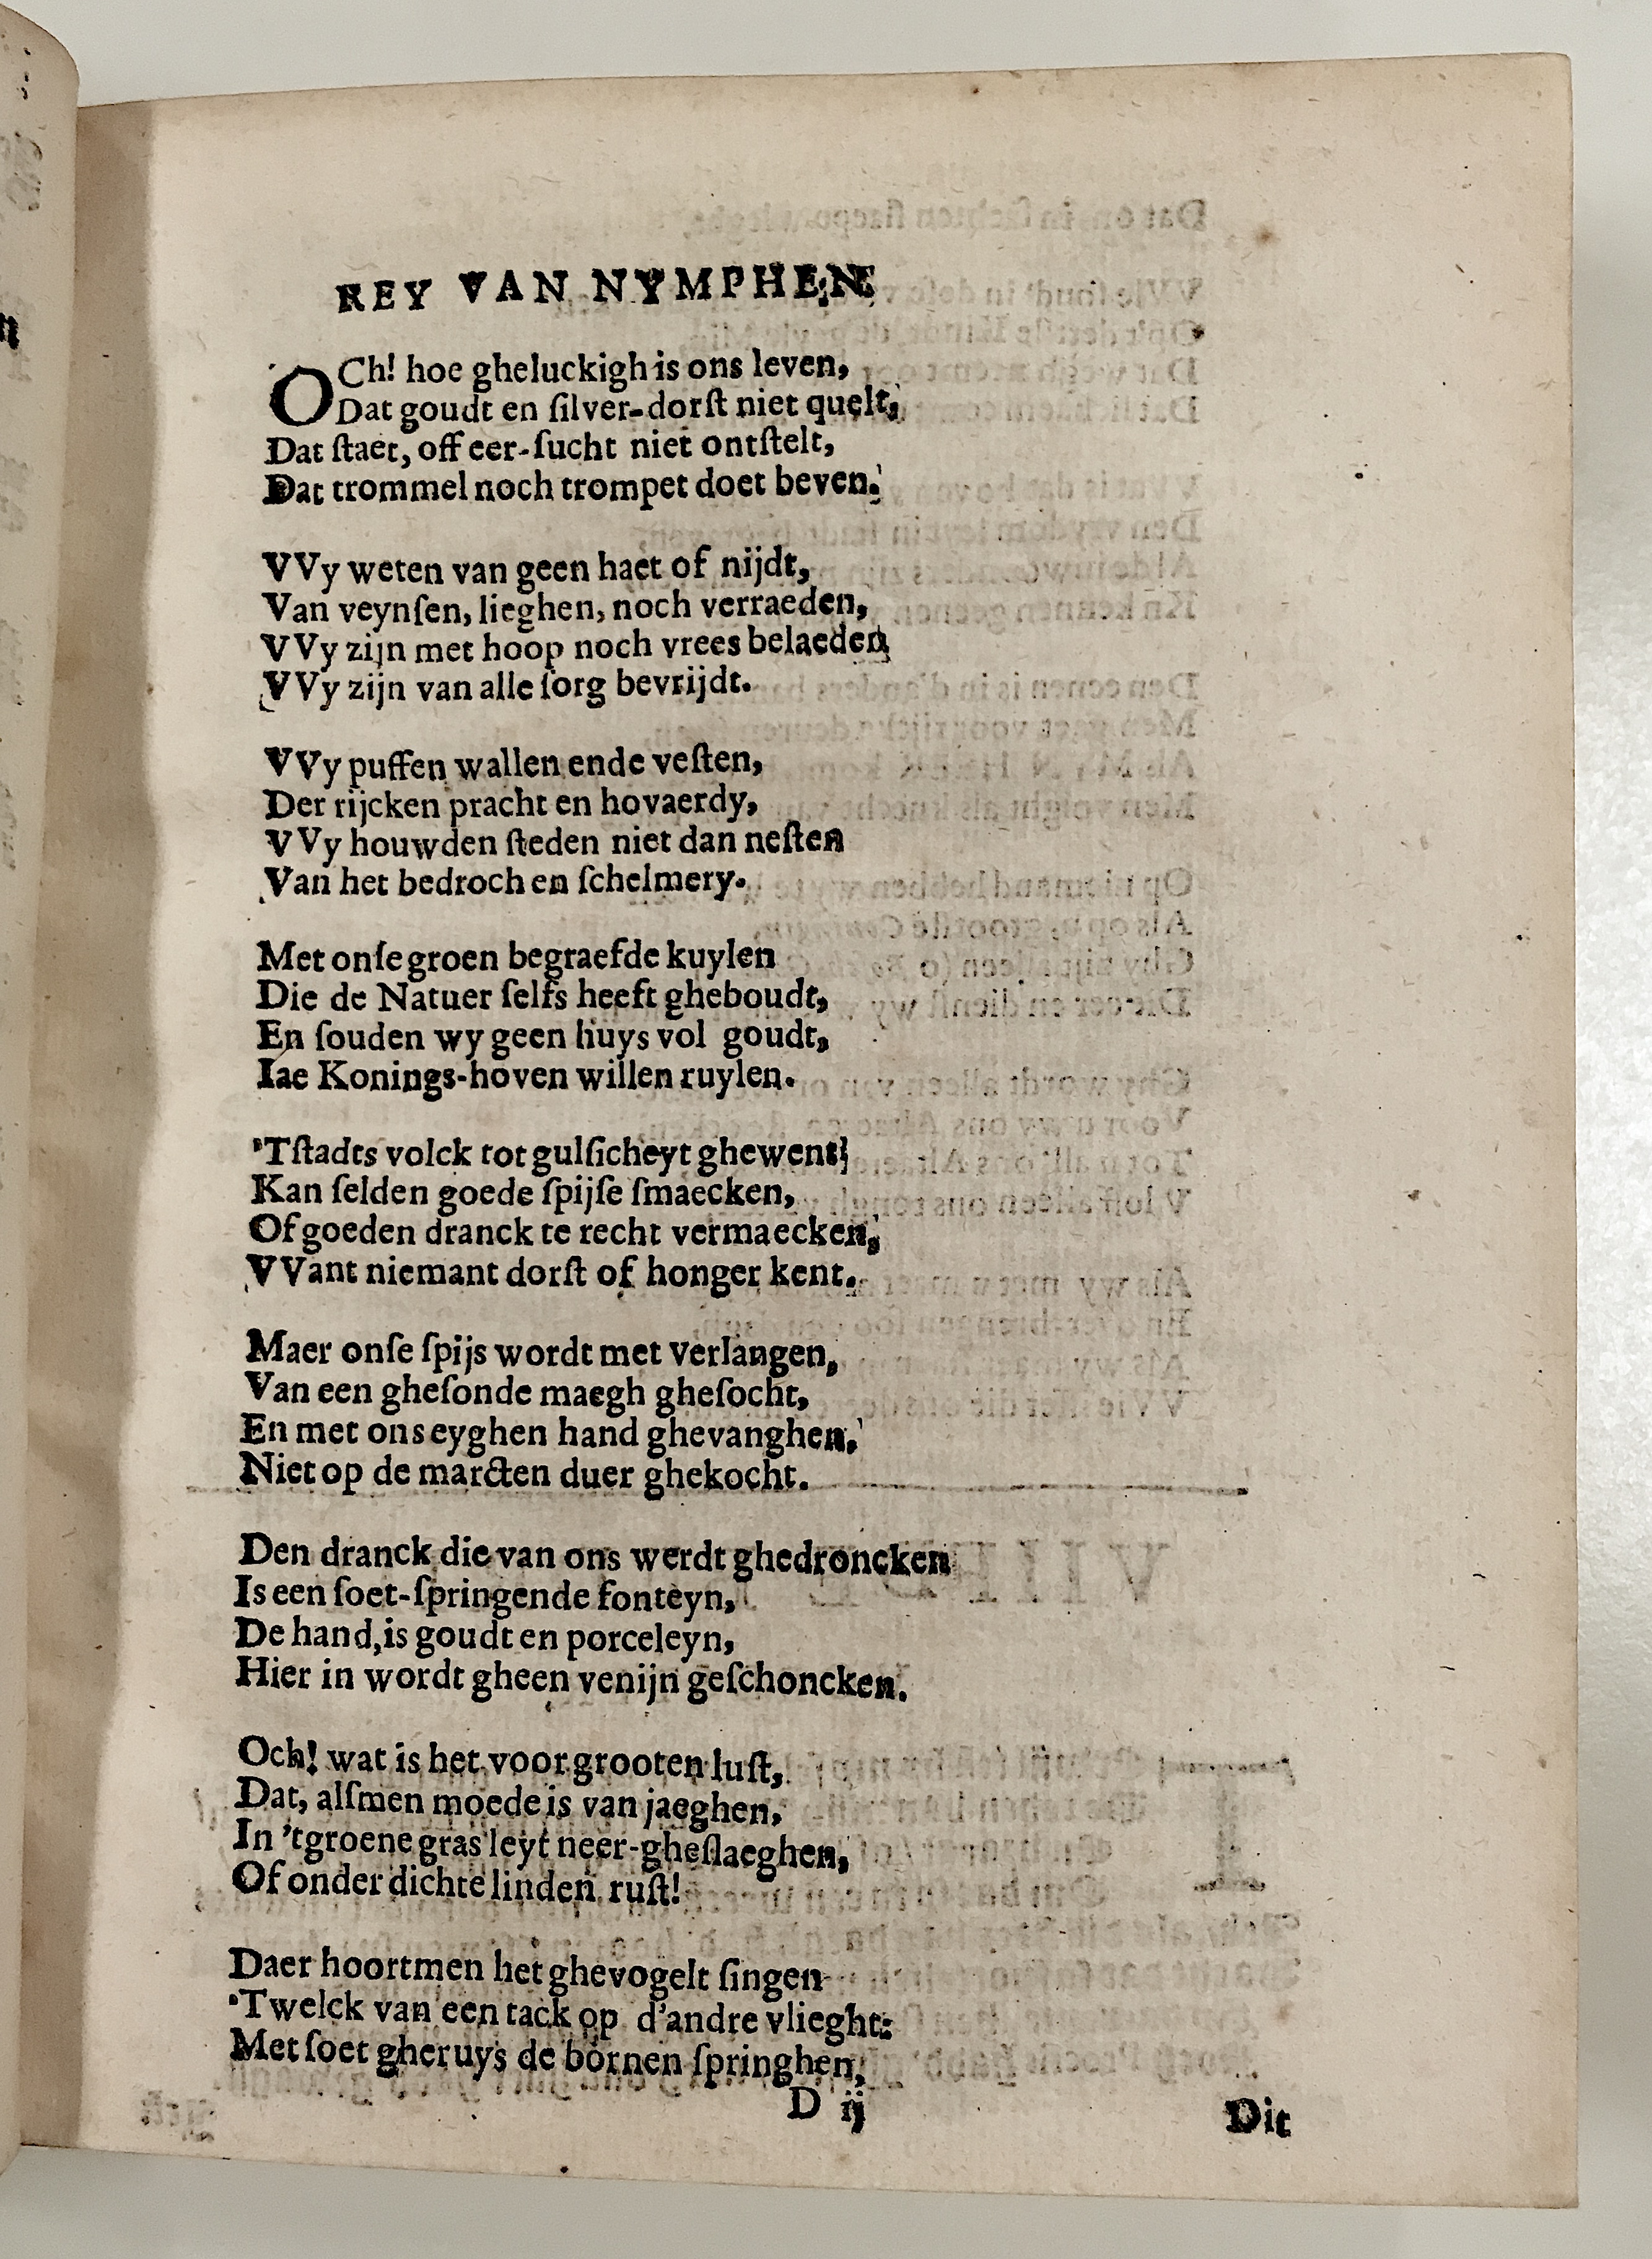 REY VAN NYMPHEN.
OCh! hoe gheluckigh is ons leven,
Dat goudt en ſilver-dorſt niet quelt,
Dat ſtaet, off eer-ſucht niet ontſtelt,
Dat trommel noch trompet doet beven.
VVy weten van geen haet of nijdt,
Van veynſen, lieghen, noch verraeden,
VVy zijn met hoop noch vrees belaeden,
VVy zijn van alle ſorg bevrijdt.
VVy puffen wallen ende veſten,
Der rijcken pracht en hovaerdy,
VVy houwden ſteden niet dan neſten
Van het bedroch en ſchelmery.
Met onſe groen begraefde kuylen
Die de Natuer ſelfs heeft gheboudt,
En ſouden wy geen huys vol goudt,
Iae Konings-hoven willen ruylen.
'Tſtadts volck tot gulſicheyt ghewent,
Kan ſelden goede ſpijſe ſmaecken,
Of goeden dranck te recht vermaecken,
VVant niemant dorſt of honger kent.
Maer onſe ſpijs wordt met verlangen,
Van een gheſonde maegh gheſocht,
En met ons eyghen hand ghevanghen,
Niet op de marcten duer ghekocht.
Den dranck die van ons werdt ghedroncken
Is een ſoet-ſpringende fonteyn,
De hand, is goudt en porceleyn,
Hier in wordt gheen venijn geſchoncken.
Och! wat is het voor grooten luſt,
Dat, alſmen moede is van jaeghen,
In 'tgroene gras leyt neer-gheſlaeghen,
Of onder dichte linden ruſt!
Daer hoortmen het ghevogelt ſingen
'Twelck van een tack op d'andre vlieght:
Met ſoet gheruys de bornen ſpringhen,
D ij
Dit